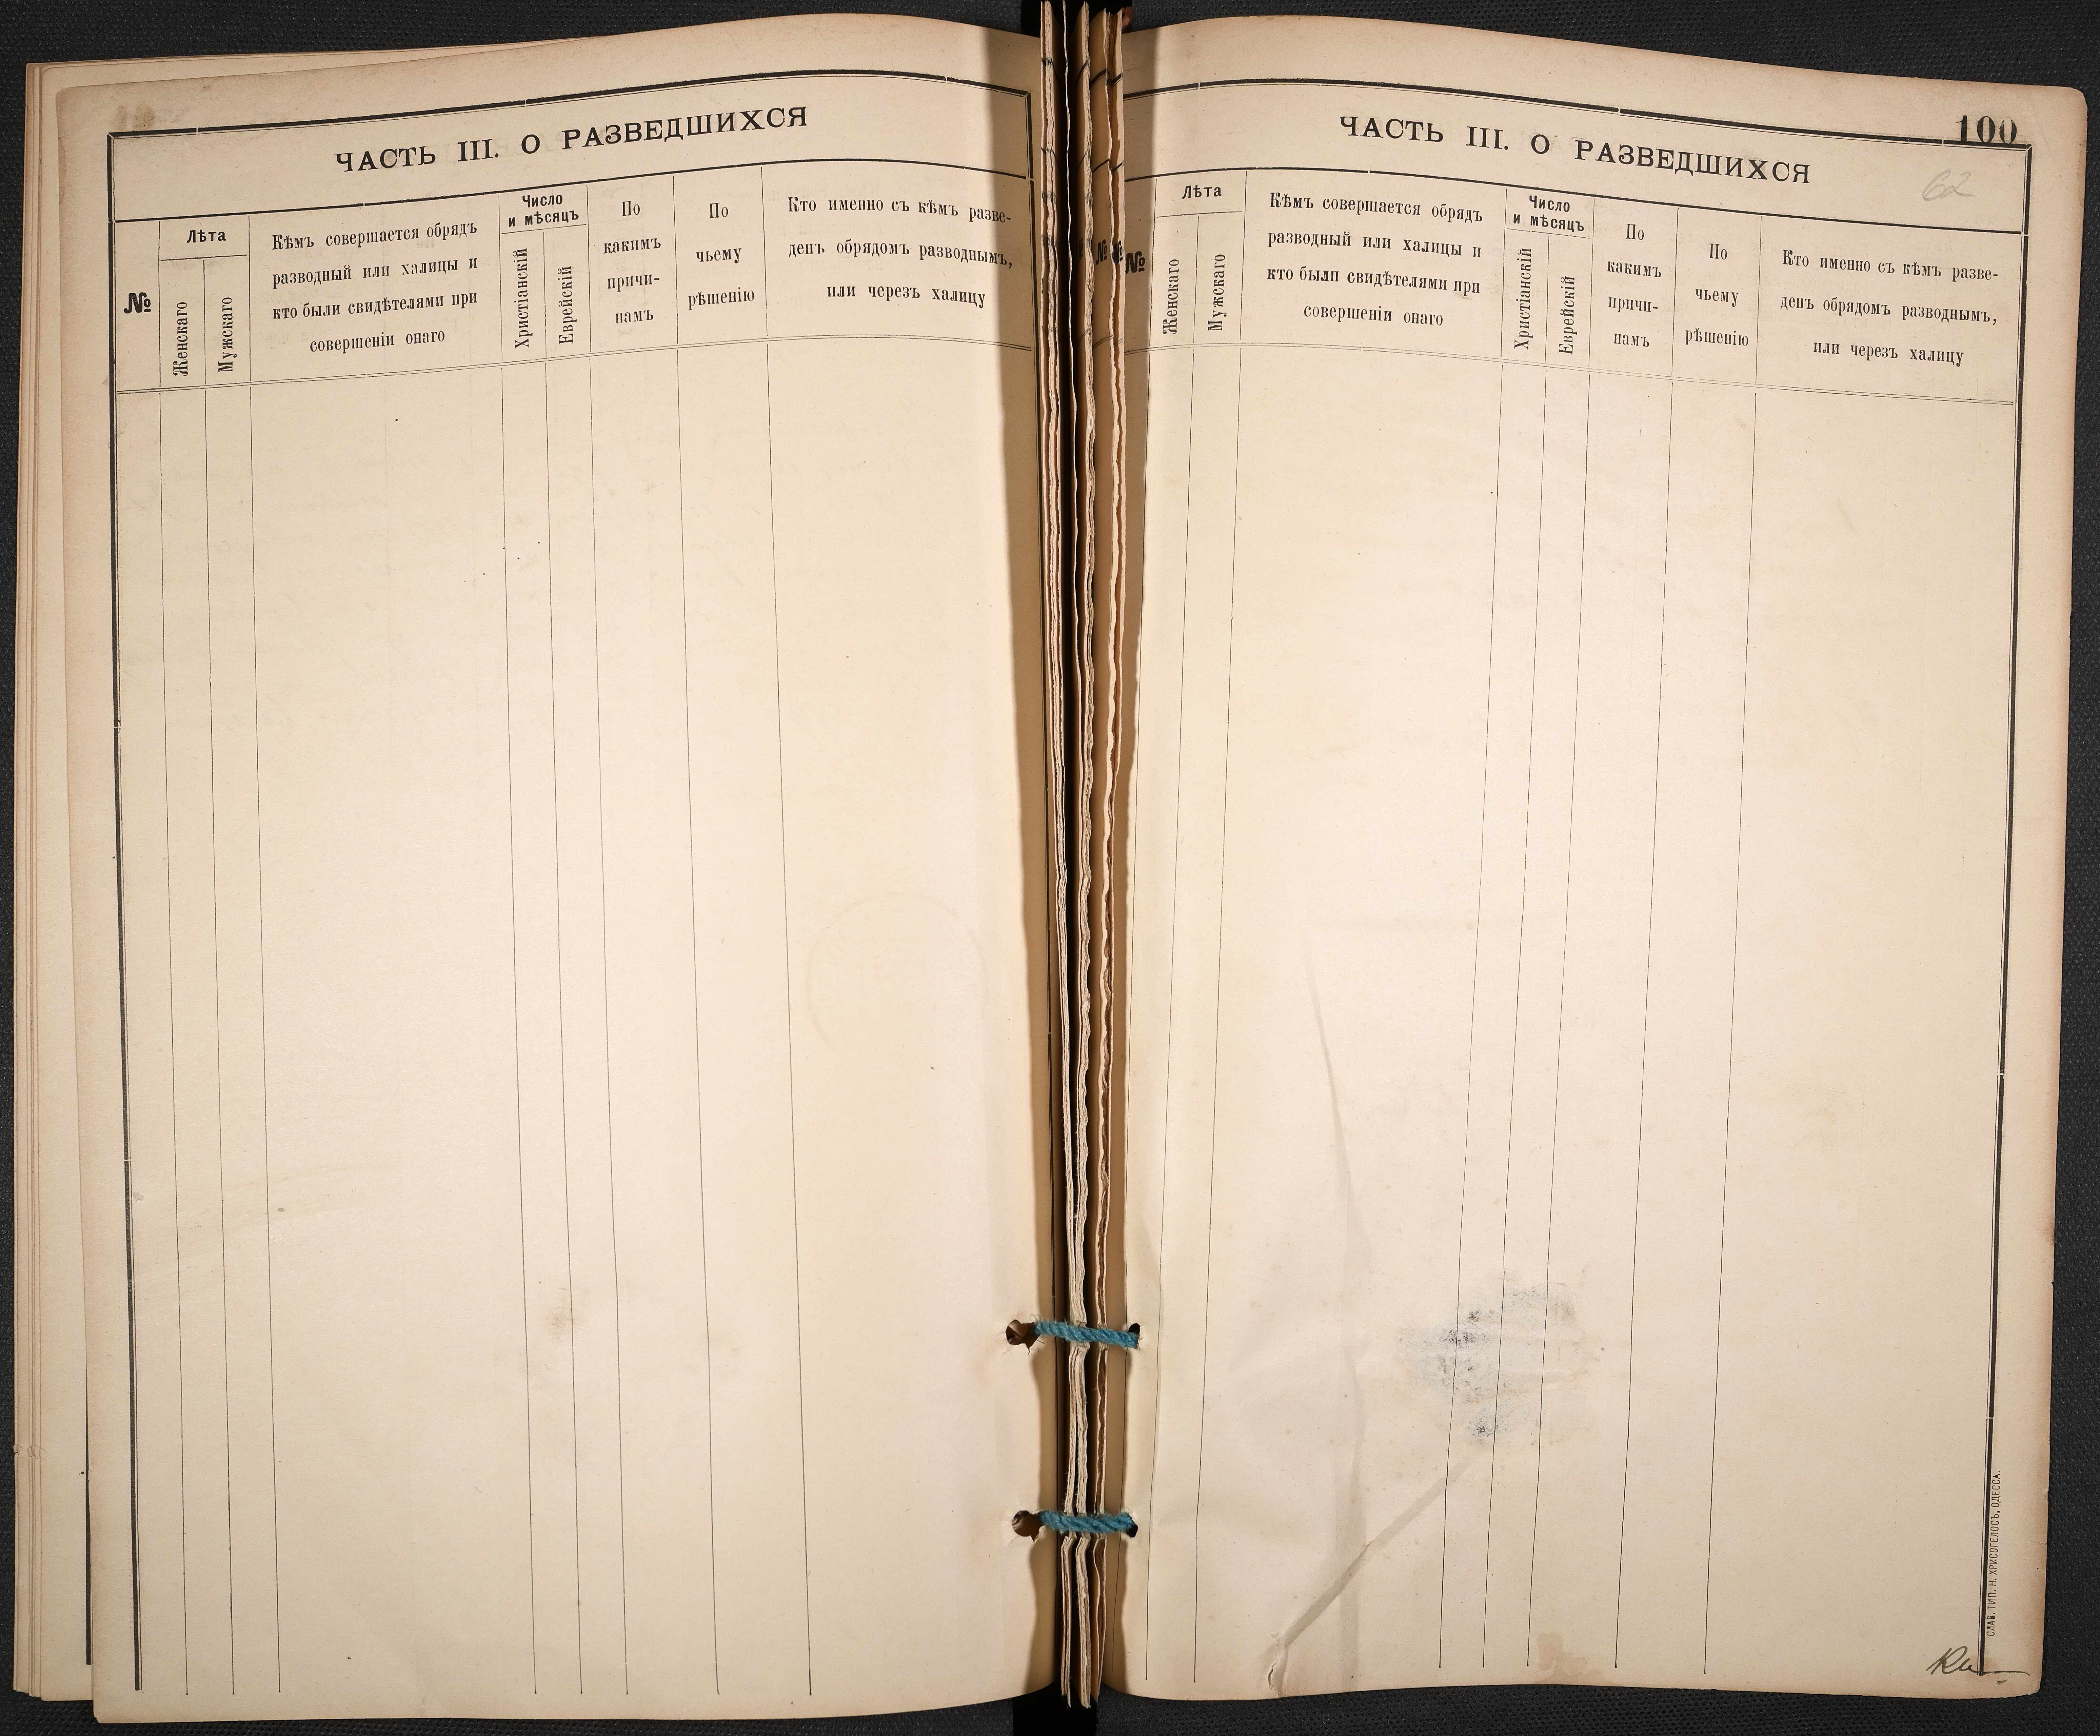 ЧАСТЬ III. О РАЗВЕДШИХСЯ
№
Лѣта
Женскаго
Мужскаго
Кѣмъ совершается обрядъ
разводный или халицы и
кто были свидѣтелями при
совершеніи онаго
Число
и мѣсяцъ
Христіанскій
Еврейскій
По
какимъ
причи-
намъ
По
чьему
рѣшенію
Кто именно съ кѣмъ разве-
денъ обрядомъ разводнымъ,
или черезъ халицу
100
ЧАСТЬ III. О РАЗВЕДШИХСЯ
62
№
№
№
Лѣта
Женскаго
Мужскаго
Кѣмъ совершается обрядъ
разводный или халицы и
кто были свидѣтелями при
совершеніи онаго
Число
и мѣсяцъ
Христіанскій
Еврейскій
По
какимъ
причи-
намъ
По
чьему
рѣшенію
Кто именно съ кѣмъ разве-
денъ обрядомъ разводнымъ,
или черезъ халицу
СЛАВ. ТИП. Н. ХРИСОГЕЛОСЪ, ОДЕССА.